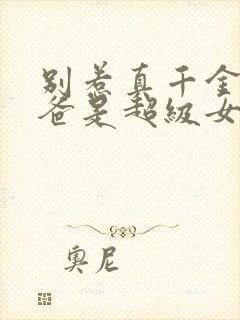 别惹真千金
爸是超级女
奥尼